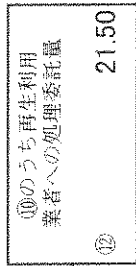 ⑩のうち再生利用
業者への処理委託量
⑫ 21.50